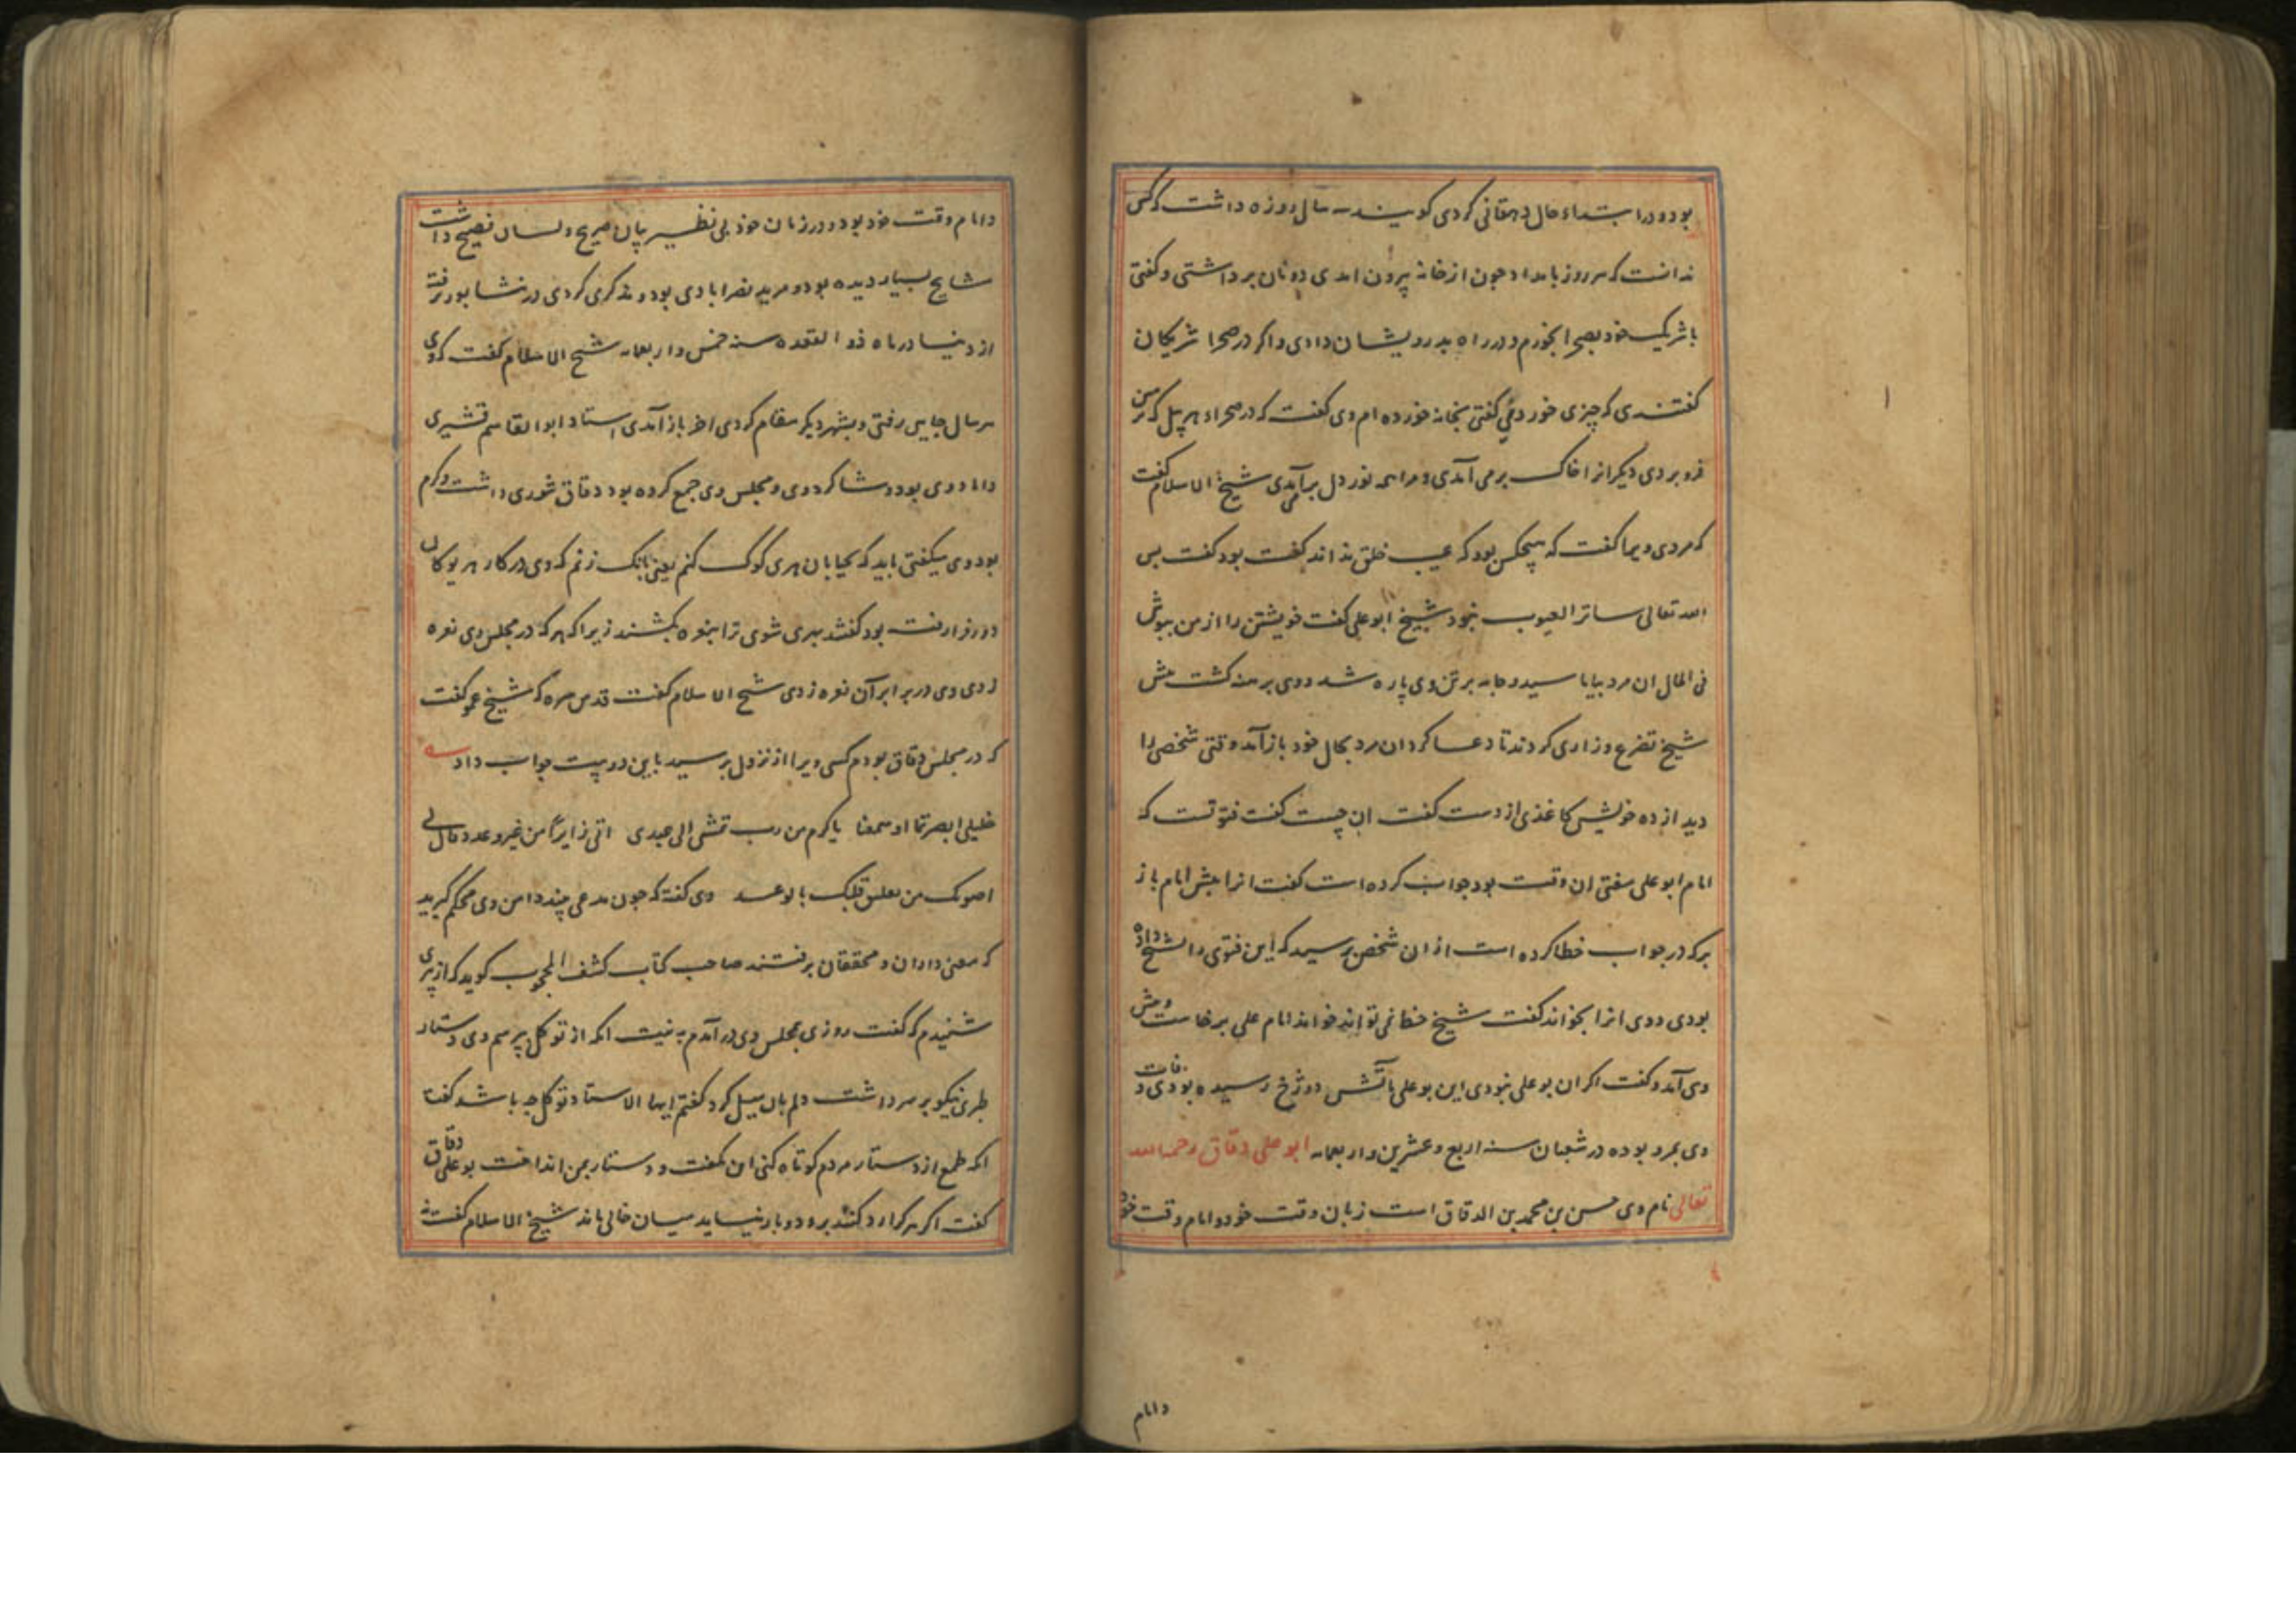 بود و در ابتداء حال دهقانی کردی کویند سی سال روزه داشت که کس
ندانست که هر روز بامداد چون از خانه بیرون امدی دو نان برداشتی و کفتی
با شریک خود بصحرا بخورم و در راه بدرویشان دادی و اکر در صحرا شریکان
کفتندی که چیزی خور دمی کفتی بخانه خورده ام وی کفت که در صحراء هر بیل که بر زمین
فرو بردی دیکر از خاک برمی آمدی و مرا همه نور دل برمی آمدی شیخ الاسلام کفت
که مردی ویرا کفت که هیچکس بود که عیب خلق نداند کفت بود کفت پس
الله تعالی ساتر العیوب نبود شیخ ابو علی کفت خویشتن را از من بپوش
فی الحال ان مرد بیاماسید و جامه بر تن وی پاره شد و وی برهنه کشت پیش
شیخ تضرع و زاری کردند تا دعا کرد ان مرد بحال خود باز آمد وقتی شخصی را
دید از ده خویش کاغذی از دست کفت ان چیست کفت فتوتست که
امام ابو علی مفتی ان وقت بود جواب کرده است کفت انرا پیش امام باز
بر که در جواب خطا کرده است از ان شخص پرسید که این فتوی را بشیخ داده
بودی و وی انرا بخواند کفت شیخ خط نمی تواند خواند امام علی برخاست و پیش
وی آمد و کفت اکر ان بو علی نبودی این بو علی باتش دوزخ رسیده بودی وفات
وی بمرو بوده در شعبان سنه اربع و عشرین و اربعمایه ابو علی دقاق رحمه الله
تعالی نام وی حسن بن محمد بن الدقاق است زبان وقت خود و امام وقت خود
و امام
و امام وقت خود بود و در زمان خود بی نظیر بیان صریح و لسان فصیح داشت
مشایخ بسیار دیده بود و مرید نصرابادی بود و تذکری کردی در نشابور برفته
از دنیا در ماه ذو القعده سنه خمس و اربعمایه شیخ الاسلام کفت که وی
هر سال جایی رفتی و بشهر دیکر مقام کردی اخر باز آمدی استاد ابو القاسم قشیری
داماد وی بود و شاکرد وی و مجلس وی جمع کرده بود دقاق شوری داشت و کرم
بود وی میکفتی باید که بخیابان هری کوک کنم یعنی بانک زنم که وی در کار هریو کان
دور فرا رفت بود کفتند بهری شوی ترا بنعره بکشند زیرا که هر که در مجلس وی نعره
زدی وی در برابر آن نعره زدی شیخ الاسلام کفت قدس سره که شیخ عمو کفت
که در مجلس دقاق بودم کسی ویرا از نزول پرسید باین دو بیت جواب داد
خلیلی ابصرتما او سمعتما یاکرم من رب تمشی الی عبدی اتی زایرا من غیر وعد و قال لی
اصونک من تعلیق قلبک بالوعد وی کفته که چون مدعی بیند دامن وی محکم کیرید
که معنی داران و محققان برفتند صاحب کتاب کشف المحجوب کوید که از پیری
شنیدم که کفت روزی بمجلس وی در آمدم به نیت انکه از توکل پرسم وی دستار
طبری نیکو بر سر داشت دلم بان میل کرد کفتم ایها الاستاد توکل چه باشد کفت
انکه طمع از دستار مردم کوتاه کنی این کفت و دستار بمن انداخت بو علی دقاق
کفت اکر هر کرا رد کنند برود و باز نیاید میان خالی ماند شیخ الاسلام کفت